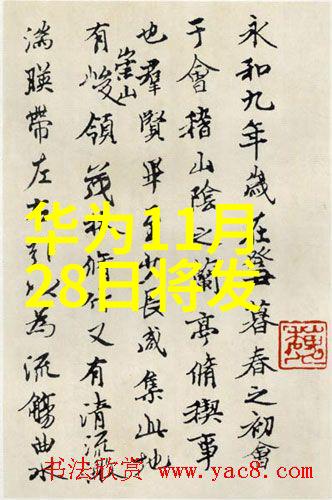 永和九年歲在癸丑暮春之初會
于會稽山陰之蘭亭脩稧事
也羣賢畢至少長咸集此地
有崇山峻領茂林脩竹又有清流激
湍暎帶左右引以為流觴曲水
华为11月
28日将发
书法欣赏 www.yac8.com